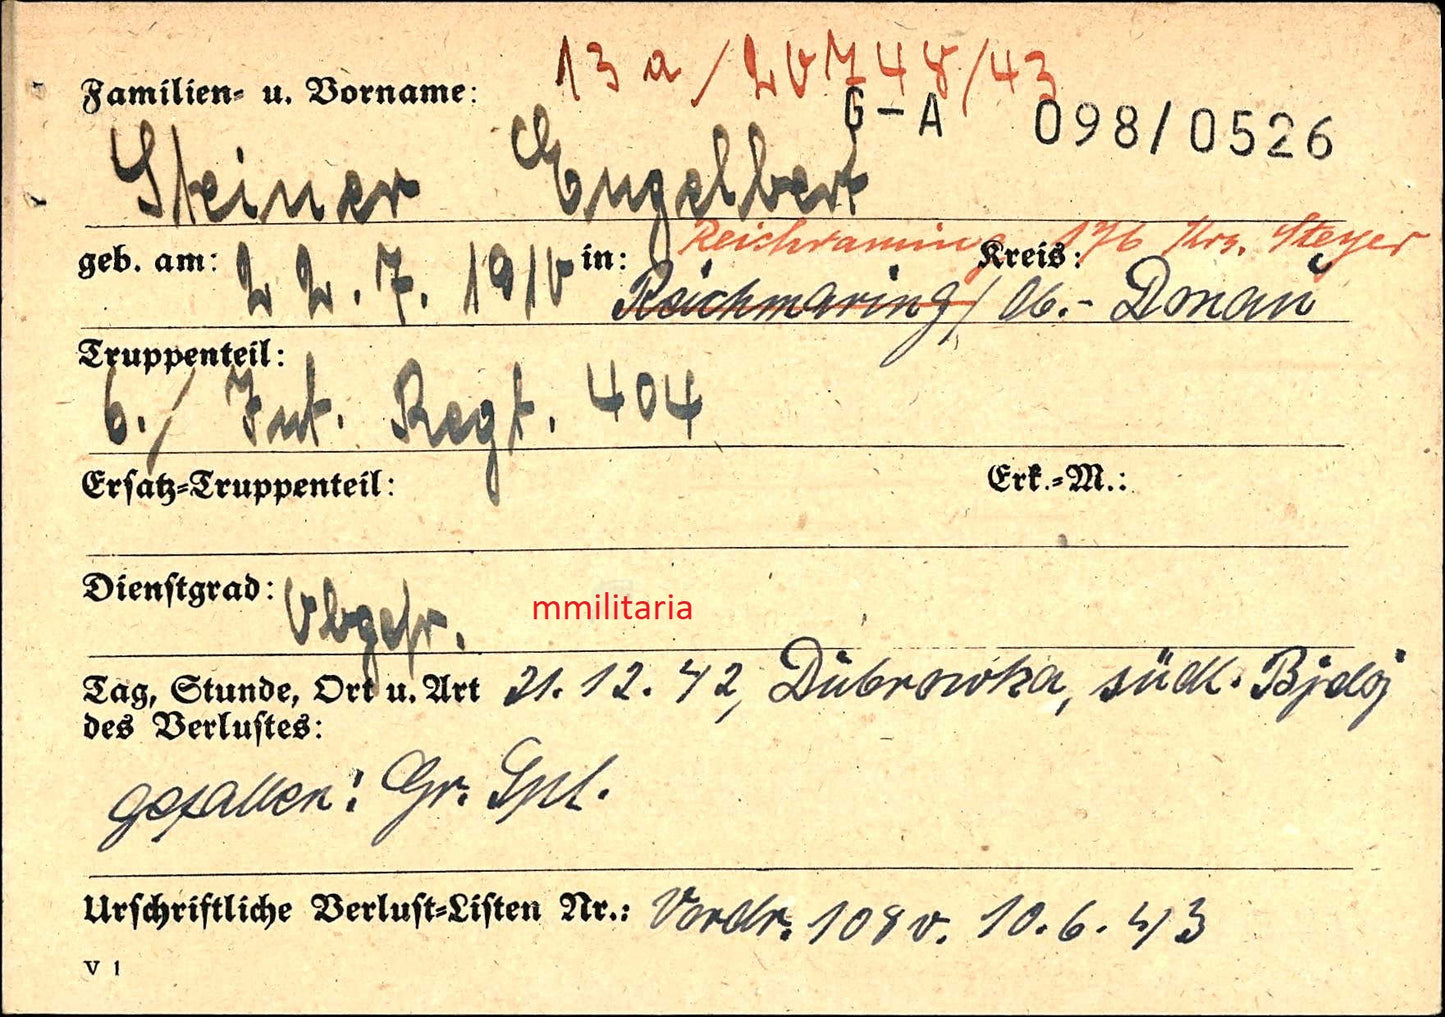 13a/20748/43
Familien- u. Vorname:
G-A 098/0526
Steiner Engelbert
Reichraming 176 Krs. Steyer
geb. am: 22.7.1910 in: Reichmaring/ Ob.- Donau Kreis:
Truppenteil:
6./ Inf. Regt. 404
Ersatz-Truppenteil: Erk.-M.:
Dienstgrad: Obgefr.
mmilitaria
Tag, Stunde, Ort u. Art 21.12.42, Dubrowka, südl. Bjeloj
des Verlustes:
gefallen! Gr. Spl.
Urschriftliche Verlust-Listen Nr.: Vordr. 108 v. 10.6.43
V 1